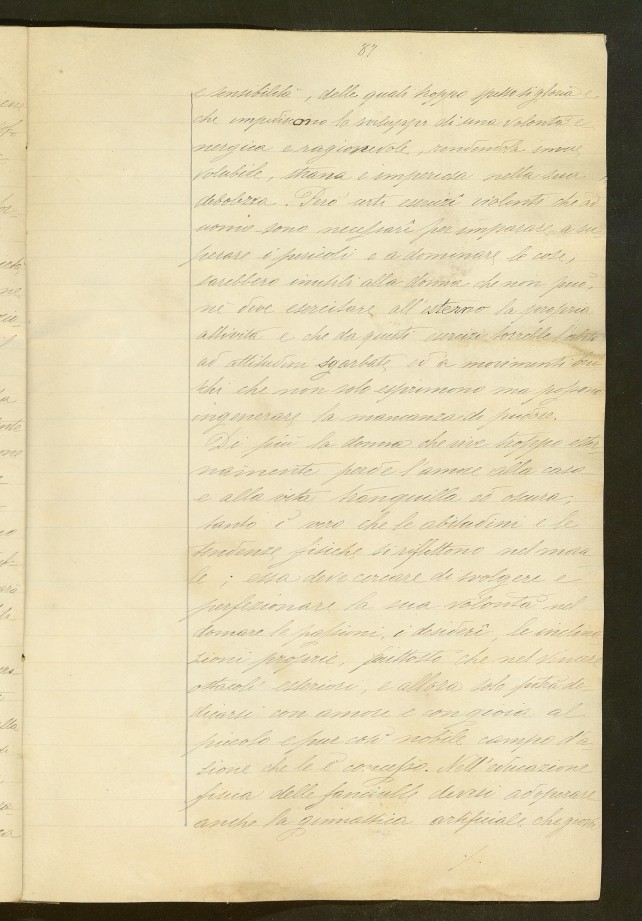 87
e sensibilità, delle quali troppo spesso si gloria e
che impediscono lo sviluppo di una volontà e
nergica e ragionevole, rendendola
volubile, strana e imperiosa nella sua
debolezza. Però certi esercizi violenti che all'
uomo sono necessarî per imparare a su
perare i pericoli e a dominare le cose,
sarebbero inutili alla donna che non può,
nè deve esercitare all'esterno la propria
attività e che da questi esercizi
ad attitudini sgarbate, ed a movimenti
che non solo esprimono ma possono
ingenerare la mancanza di pudore.
Di più la donna che vive troppo ester
namente perde l'amore alla casa
e alla vita tranquilla ed oscura;
tanto è vero che le abitudini e le
tendenze fisiche si riflettono nel mora
le; essa deve cercare di svolgere e
perfezionare la sua volontà nel
domare le passioni, i desiderî, le inclina
zioni proprie, piuttosto che nel vincere
ostacoli esteriori, e allora solo potrà de
dicarsi con amore e con gioia al
piccolo e pur così nobile campo d'a
zione che le è concesso. Nell'educazione
fisica delle fanciulle devesi adoperare
anche la ginnastica artificiale, che